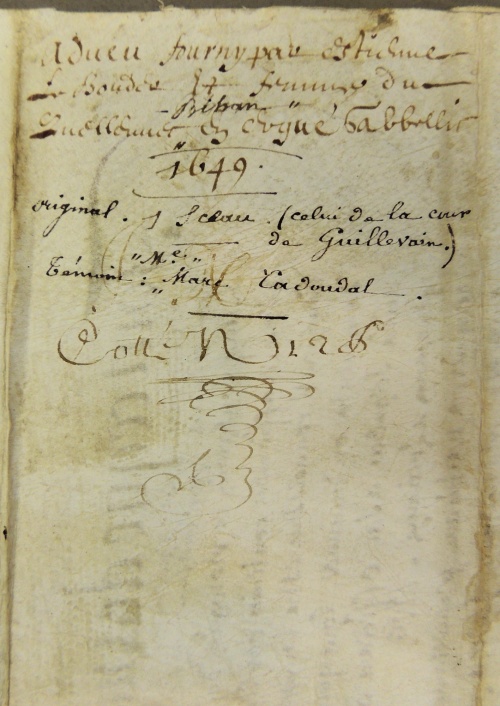 Adueu fourny par Estienne
Le Boudec & femme du
Bihan "
Guellennec en Croqué Gabbellic
1649.
original. 1 Sceau. (celui de la cour
de Guillevain.)
"Me."
Témoin : Marc Cadoudal.
Cotté N 126